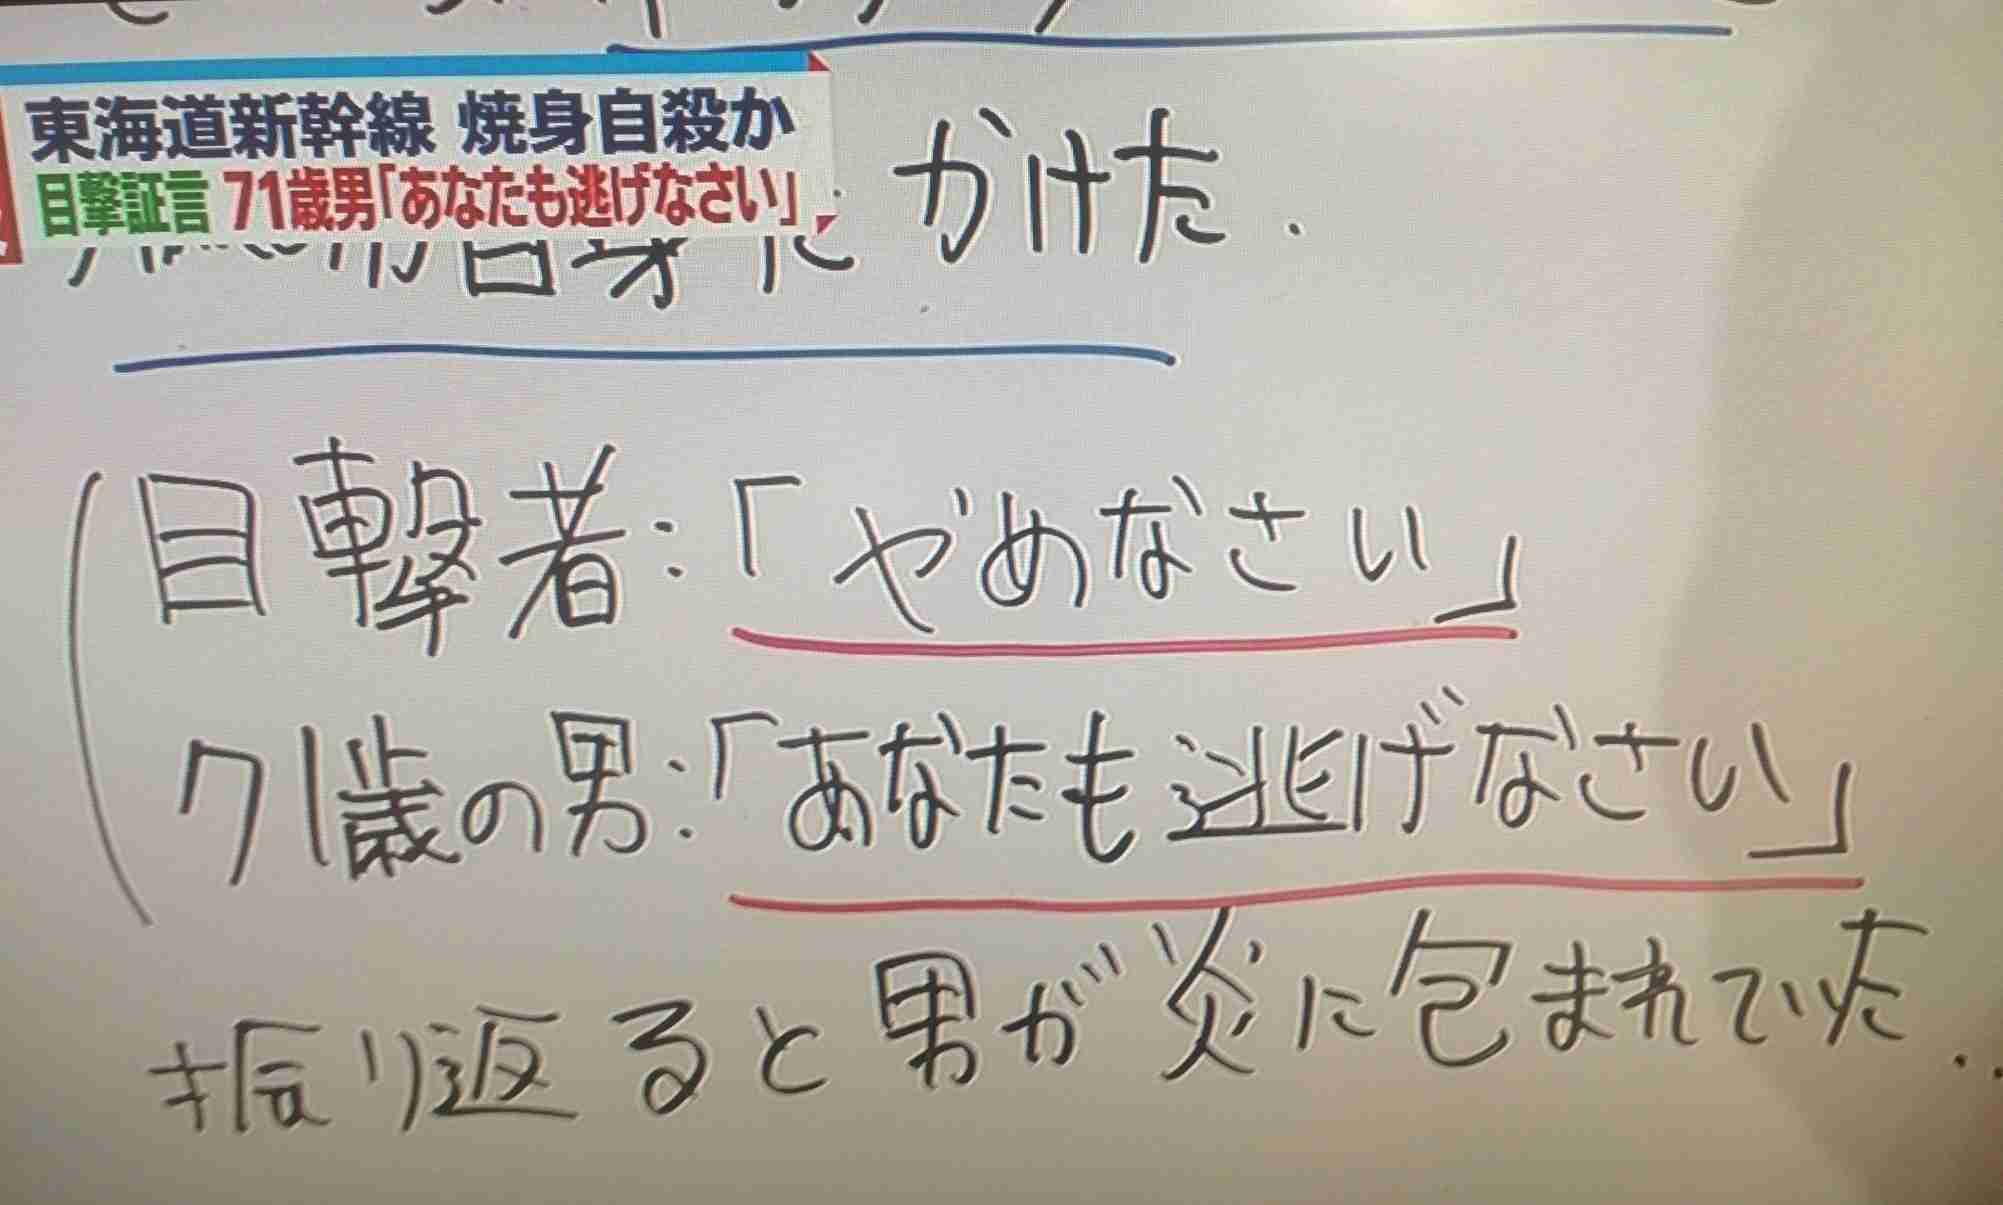 東海道新幹線 焼身自殺か
目撃証言 71歳男「あなたも逃げなさい」
自身に かけた.
目撃者:「やめなさい」
71歳の男:「あなたも逃げなさい」
振り返ると男が炎に包まれていた..